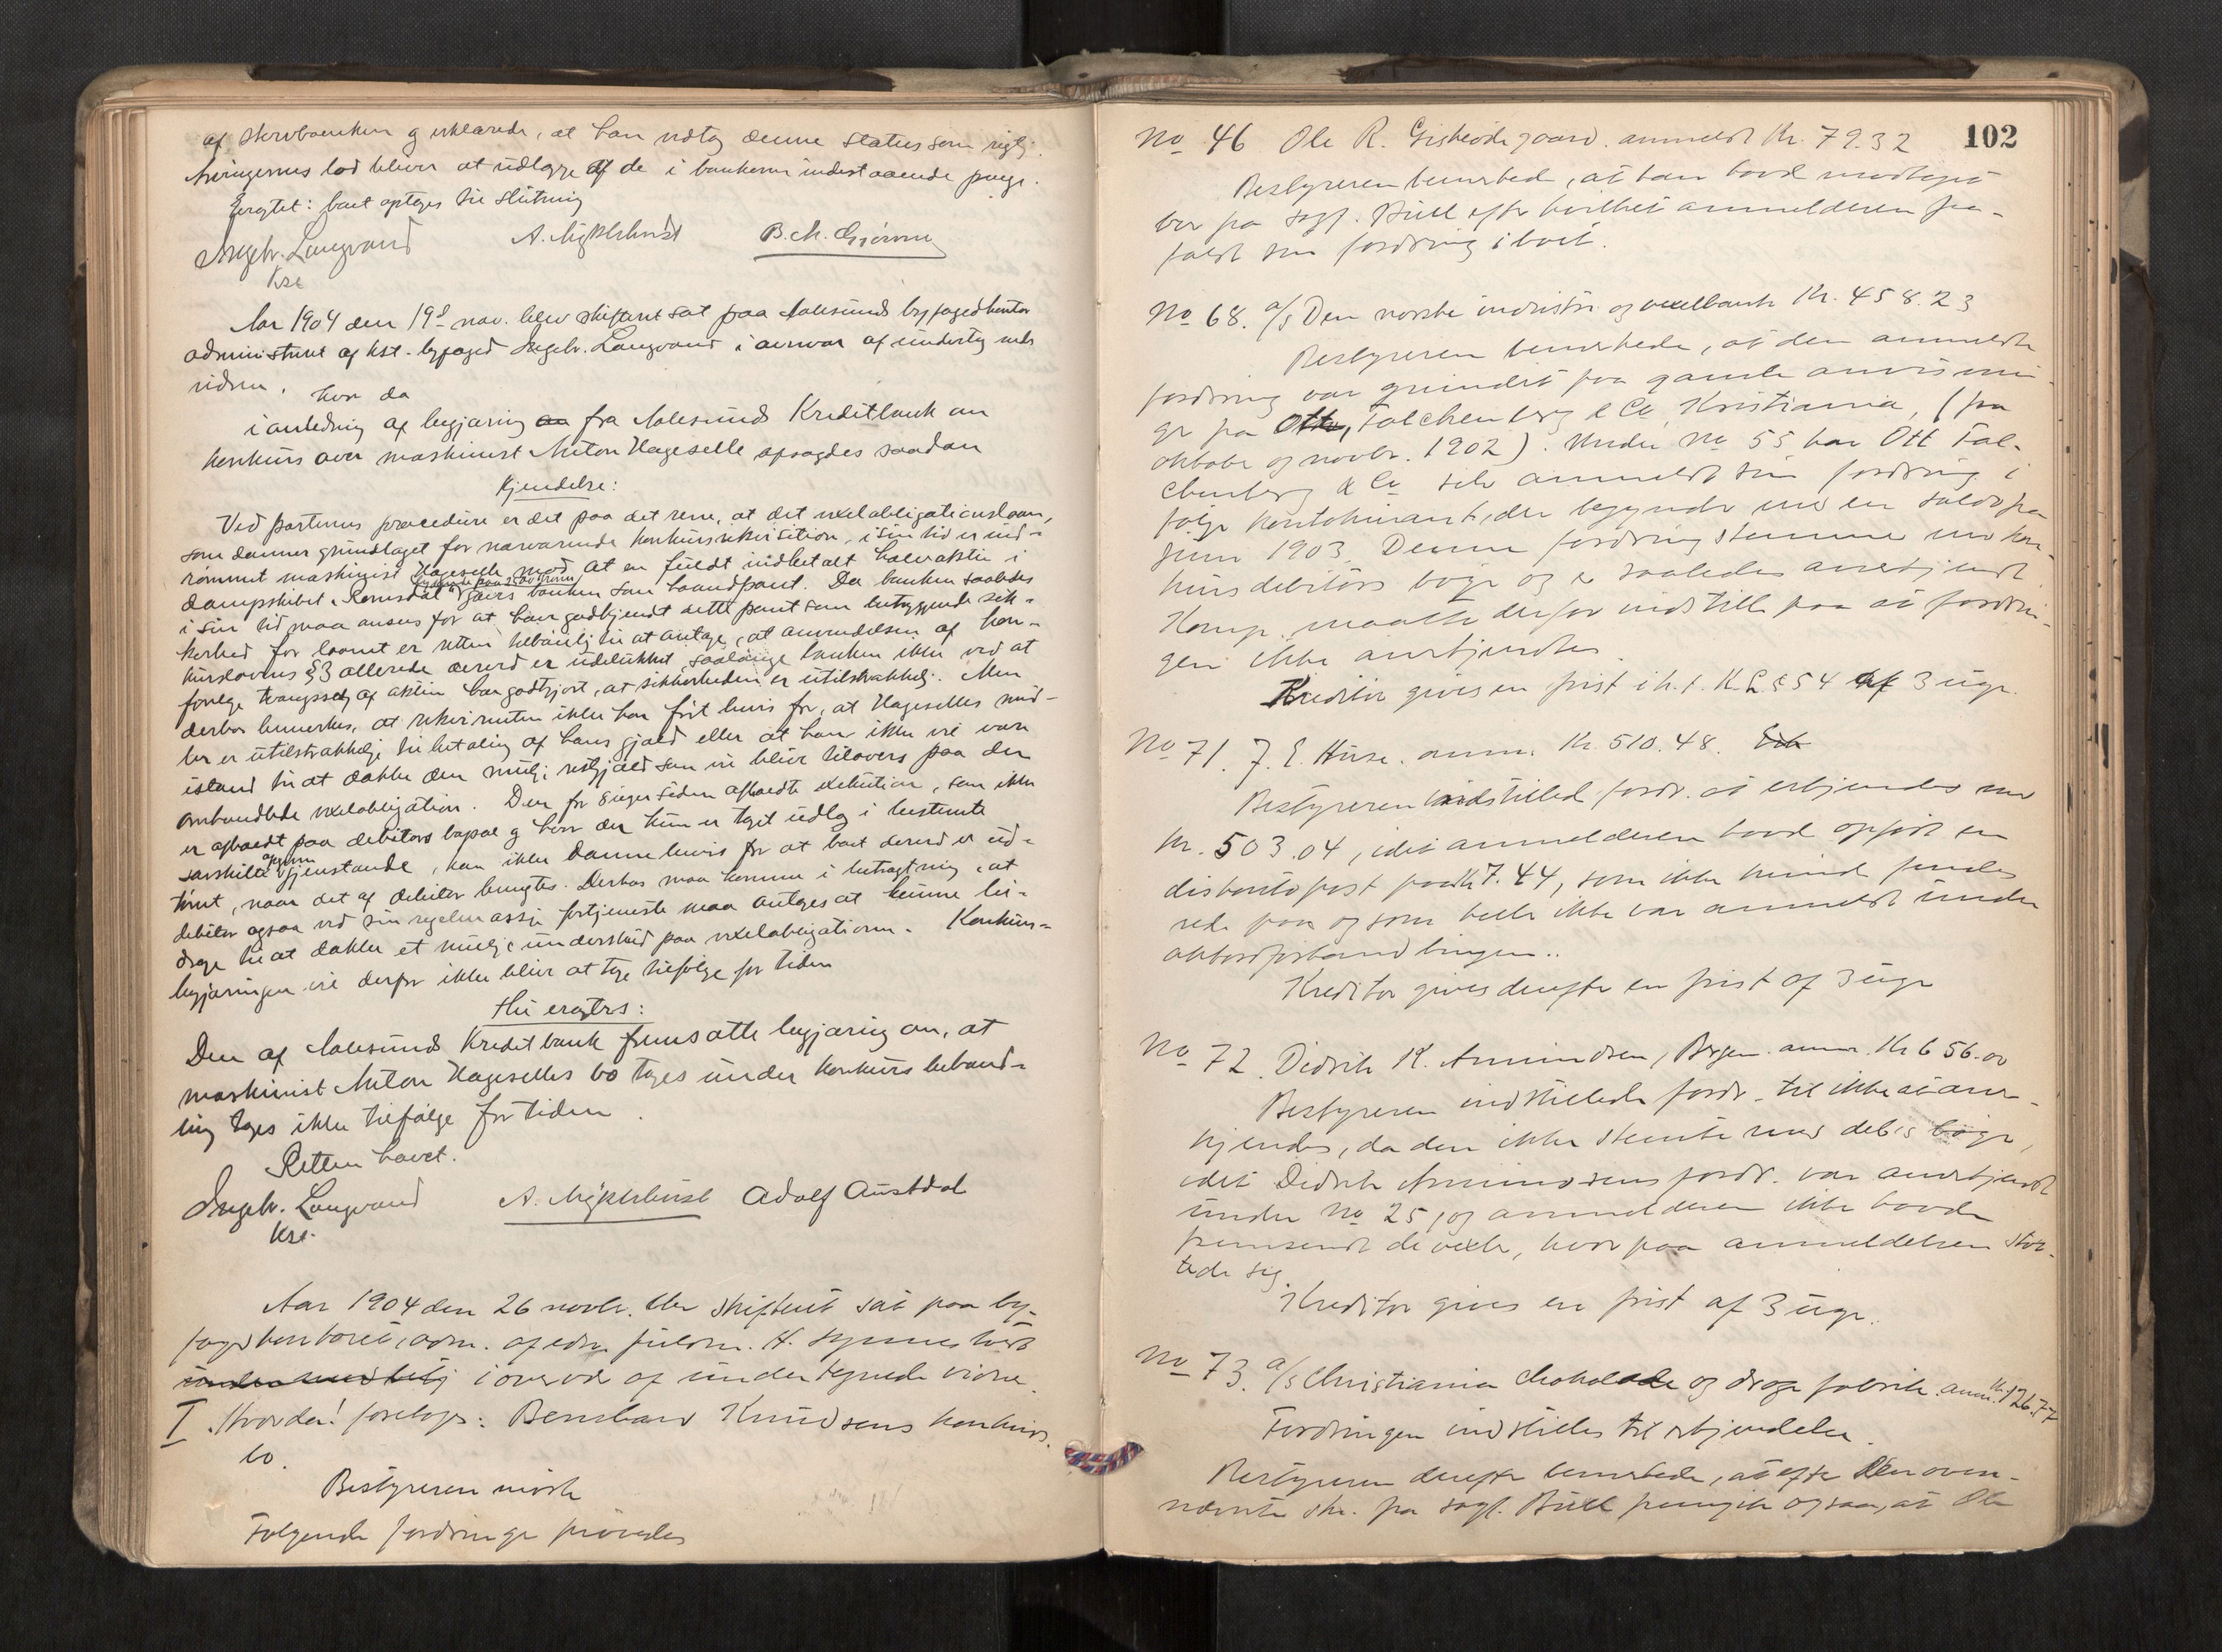 af skrivboenken g erklærede, at han vedtog denne status som rigtig.
Arvingernes lod bliver at udlægge af de i bankerne indestaaende penge.
Eragtet: boet optages til slutning
Ingebr. Langvand A. Myklebust B. M. Gjørven
Kst.
Aar 1904 den 19de nov. blev skifteret sat paa Aalesunds byfogedkontor
administreret af kst. byfoged Ingebr. Langvand i overvær af undertegnede
vidner. hvor da
i anledning af begjæring fra Aalesunds Kreditbank om
konkurs over maskinist Anton Hageselle afsagdes saadan
Kjendelse:
Ved parternes procedure er det paa det rene, at det vexelobligationslaan,
som danner grundlaget for nærværende konkursrekvisition, i sin tid er ind-
rømmet maskinist Hageselle mod at en fuldt indbetalt halvaktie i
dampskibet "Romsdal" gaves banken som haandpant. Da banken saaledes
i sin tid maa ansees for at have godkjendt dette pant som betryggende sik-
kerhed for laanet er retten tilbøielig til at antage, at anvendelsen af kon-
kurslovens § 3 allerede derved er udelukket, saalænge banken ikke ved at
foretage tvangssalg af aktien har godtgjort, at sikkerheden er utilstrækkelig. Men
derhos bemerkes, at rekvirenten ikke har ført bevis for, at Hageselles mid-
ler er utilstrækkelig til betaling af hans gjæld eller at han ikke vil være
istand til at dække den mulige restgjæld som vil blive tilovers paa den
omhandlede vexelobligation. Den fra sagsøgersiden afholdte exekution, som ikke
er afholdt paa debitors bopæl og hvor der kun er taget udlæg i bestemte
særskilte opgivne gjenstande, kan ikke danne bevis for at boet derved er ud-
tømt, naar det af debitor benegtes. Derhos maa komme i betragtning, at
debitor ogsaa ved sin regelmæssige fortjeneste maa antages at kunne bi-
drage til at dække et mulig underskud paa vexelobligationen. Konkurs-
begjæringen vil derfor ikke blive at tage tilfølge for tiden
Thi eragtes:
Den af Aalesunds Kreditbank fremsatte begjæring om, at
maskinist Anton Hageselles bo tages under konkursbehand-
ling tages ikke tilfølge for tiden.
Retten hævet.
Ingebr. Langvand A. Myklebust Adolf Austdal
Kst.
Aar 1904 den 26 novbr. blev skifteret sat paa by-
fogedkontoret, adm. af edsv. fuldm. H. Synnestvedt
i overvær af undertegnede vidner.
I. Hvorda! foretoges: Bernhard Knudsens konkurs-
bo.
Bestyreren mødte
Følgende fordringer prøvedes
102
No 46 Ole R. Giskeødegaard. anmeldt Kr. 79.32
Bestyreren bemerkede, at han havde modtaget
brev fra sagf. Bull efter hvilket anmelderen fra-
faldt sin fordring i boet.
No 68. A/S Den norske industri og vexelbank Kr. 458.23
Bestyreren bemerkede, at den anmeldte
fordring var grundet paa gamle anvisnin-
ger fra Otto Falchenberg & Co, Kristiania, (fra
oktober og novbr. 1902). Under No 55 har Ott Fal-
chenberg & Co selv anmeldt sin fordring i
følge kontokurant, der begynder med en saldo fra
juni 1903. Denne fordring stemmer med kon-
kursdebitors bøger og er saaledes anerkjendt.
Komp. maatte derfor indstille paa at fordrin-
gen ikke anerkjendtes.
Kreditor gives en frist i h.t. K.L. § 54 af 3 uger.
No 71. J. E. Huse. anm. Kr. 510.48.
Bestyreren indstilled fordr. at erkjendes med
Kr. 503.04, idet anmelderen havde opført en
diskontopost paa Kr 7.44, som ikke kunde findes
rede paa og som heller ikke var anmeldt under
akkordforhandlingen..
Kreditor gives derefter en frist af 3 uger
No 72. Didrik K. Amundsen, Bergen. anm. Kr 656.00
Bestyreren indstillede fordr. til ikke at aner-
kjendes, da den ikke stemte med deb's bøger,
idet Didrik Amundsens fordr. var anerkjendt
under No 25, og anmelderen ikke havde
fremsendt de vexler, hvorpaa anmeldelsen støt-
tede sig.
Kreditor gives en frist af 3 uger.
No 73. A/S Christiania chokolade og drage fabrik. anm. Kr. 126.77
Fordringen indstilles til erkjendelse.
Bestyreren derefter bemerkede, at efter den oven-
nævnte skr. fra sagf. Bull fremgik ogsaa, at Ole